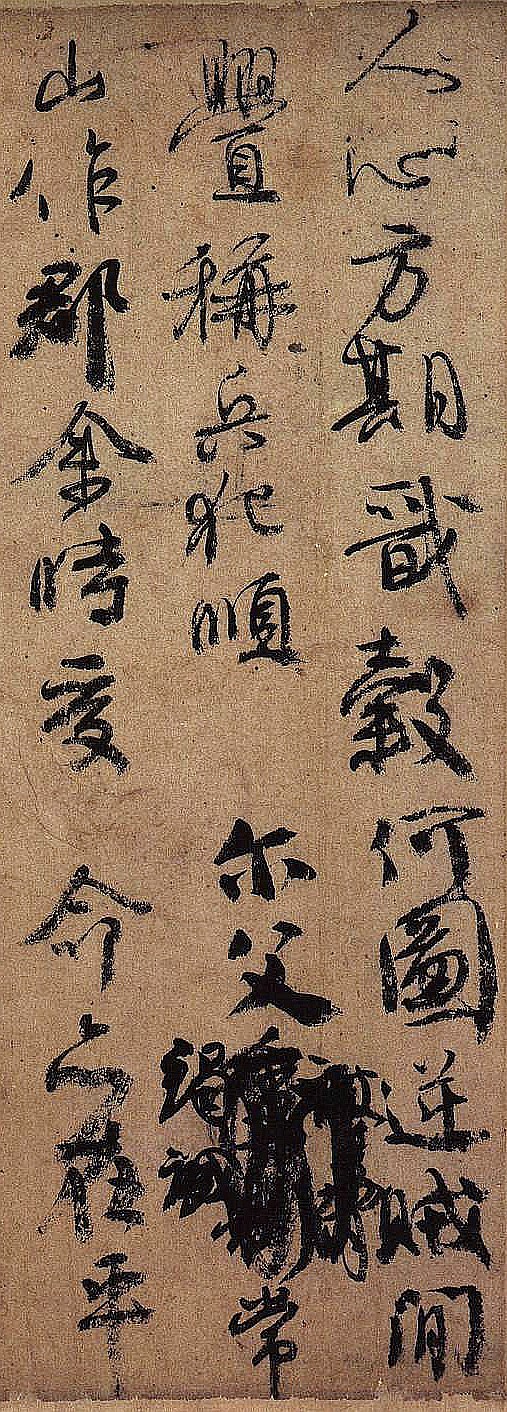 人心方期戩穀何圖逆賊閒
釁稱兵犯順 尒父竭誠常
山作郡余時受 命亦在平